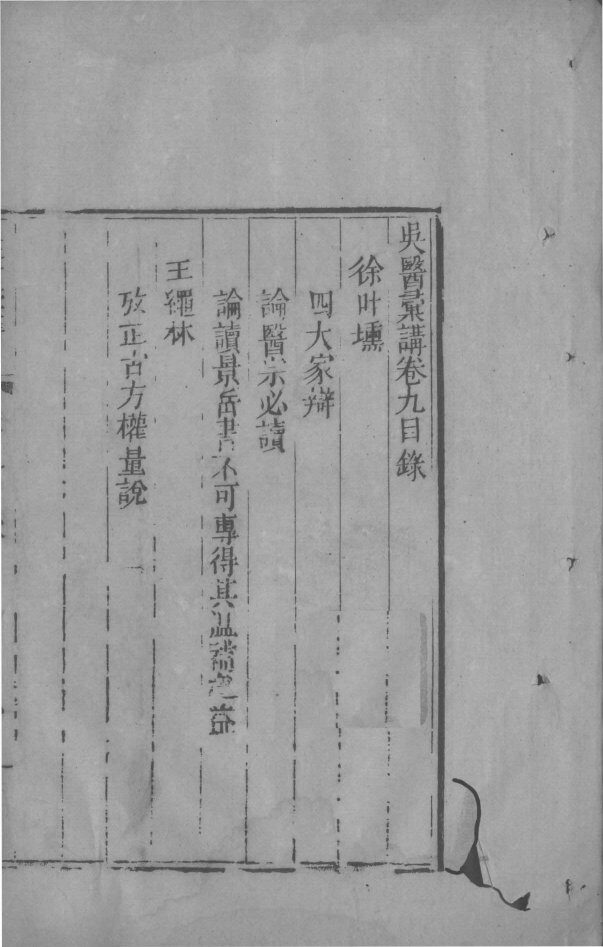 吳醫彙講卷九目錄
徐叶壎
四大家辯
論醫宗必讀
論讀景岳書不可專得其溫補之益
王繩林
攷正古方權量說